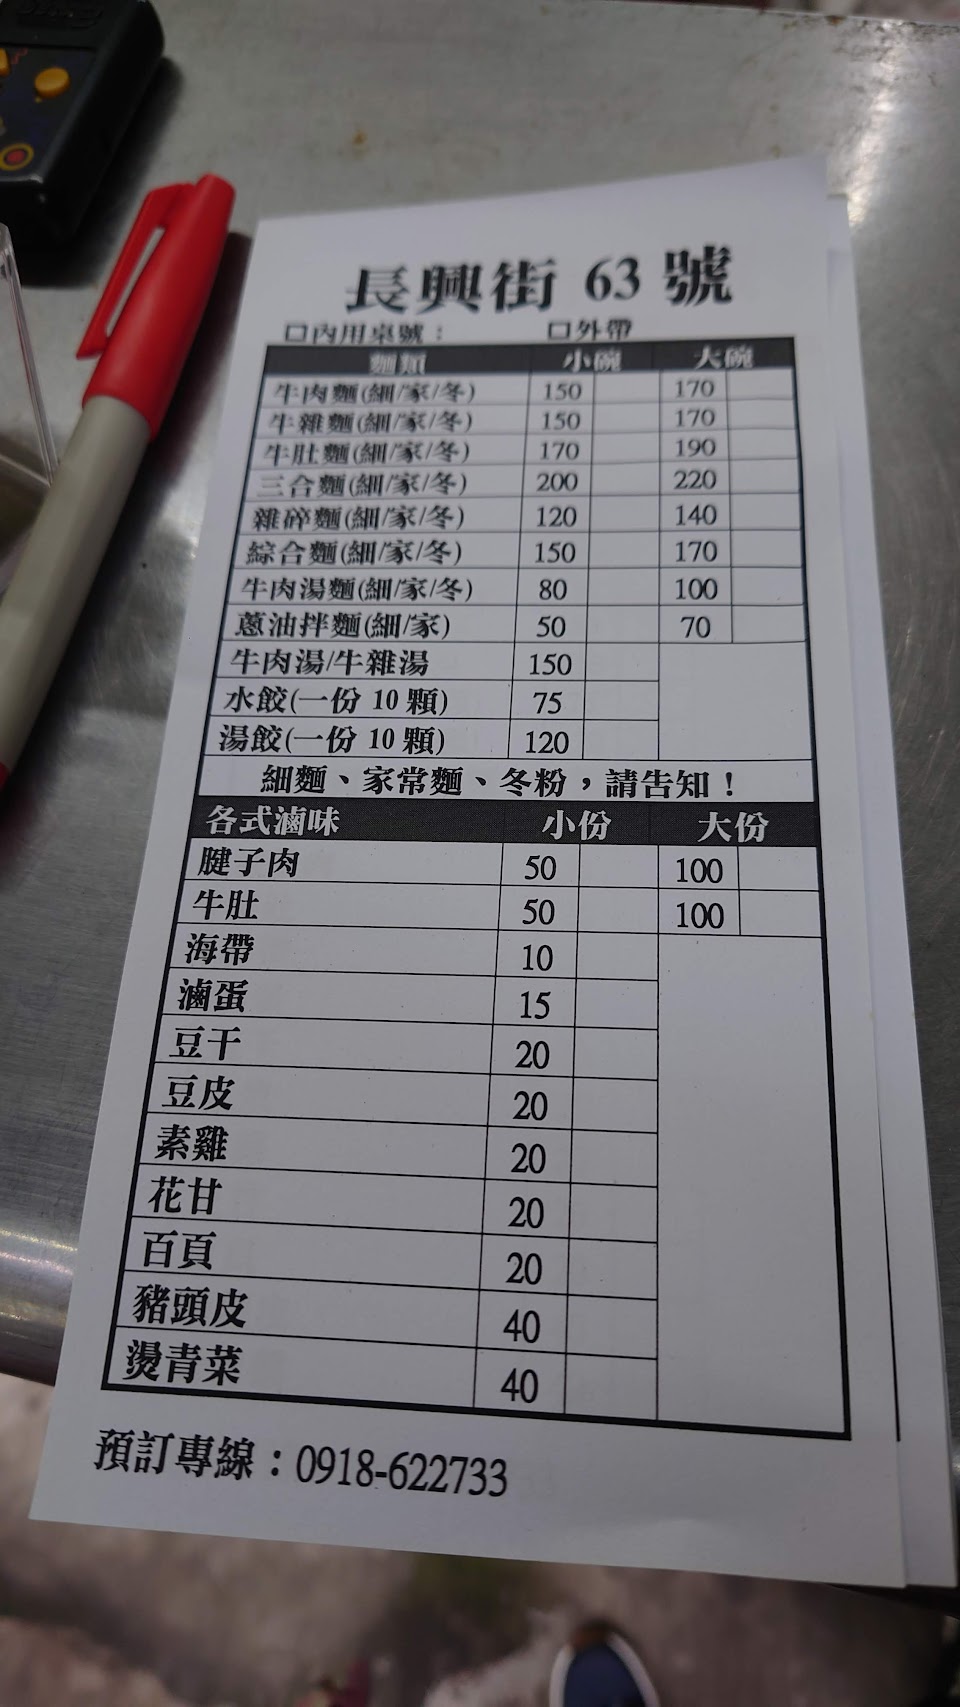 長興街 63 號
口內用桌號： 口外帶
麵類 小碗 大碗
牛肉麵(細/家/冬) 150 170
牛雜麵(細/家/冬) 150 170
牛肚麵(細/家/冬) 170 190
三合麵(細/家/冬) 200 220
雜碎麵(細/家/冬) 120 140
綜合麵(細/家/冬) 150 170
牛肉湯麵(細/家/冬) 80 100
蔥油拌麵(細/家) 50 70
牛肉湯/牛雜湯 150
水餃(一份 10 顆) 75
湯餃(一份 10 顆) 120
細麵、家常麵、冬粉，請告知！
各式滷味 小份 大份
腱子肉 50 100
牛肚 50 100
海帶 10
滷蛋 15
豆干 20
豆皮 20
素雞 20
花甘 20
百頁 20
豬頭皮 40
燙青菜 40
預訂專線：0918-622733